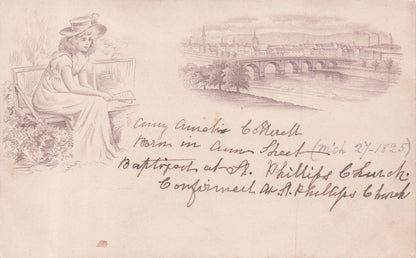 Amy Amelia Cottrell
Born in Ann Street (Mch 27-1825)
Baptized at St. Phillips Church.
Confirmed At St. Phillips Church